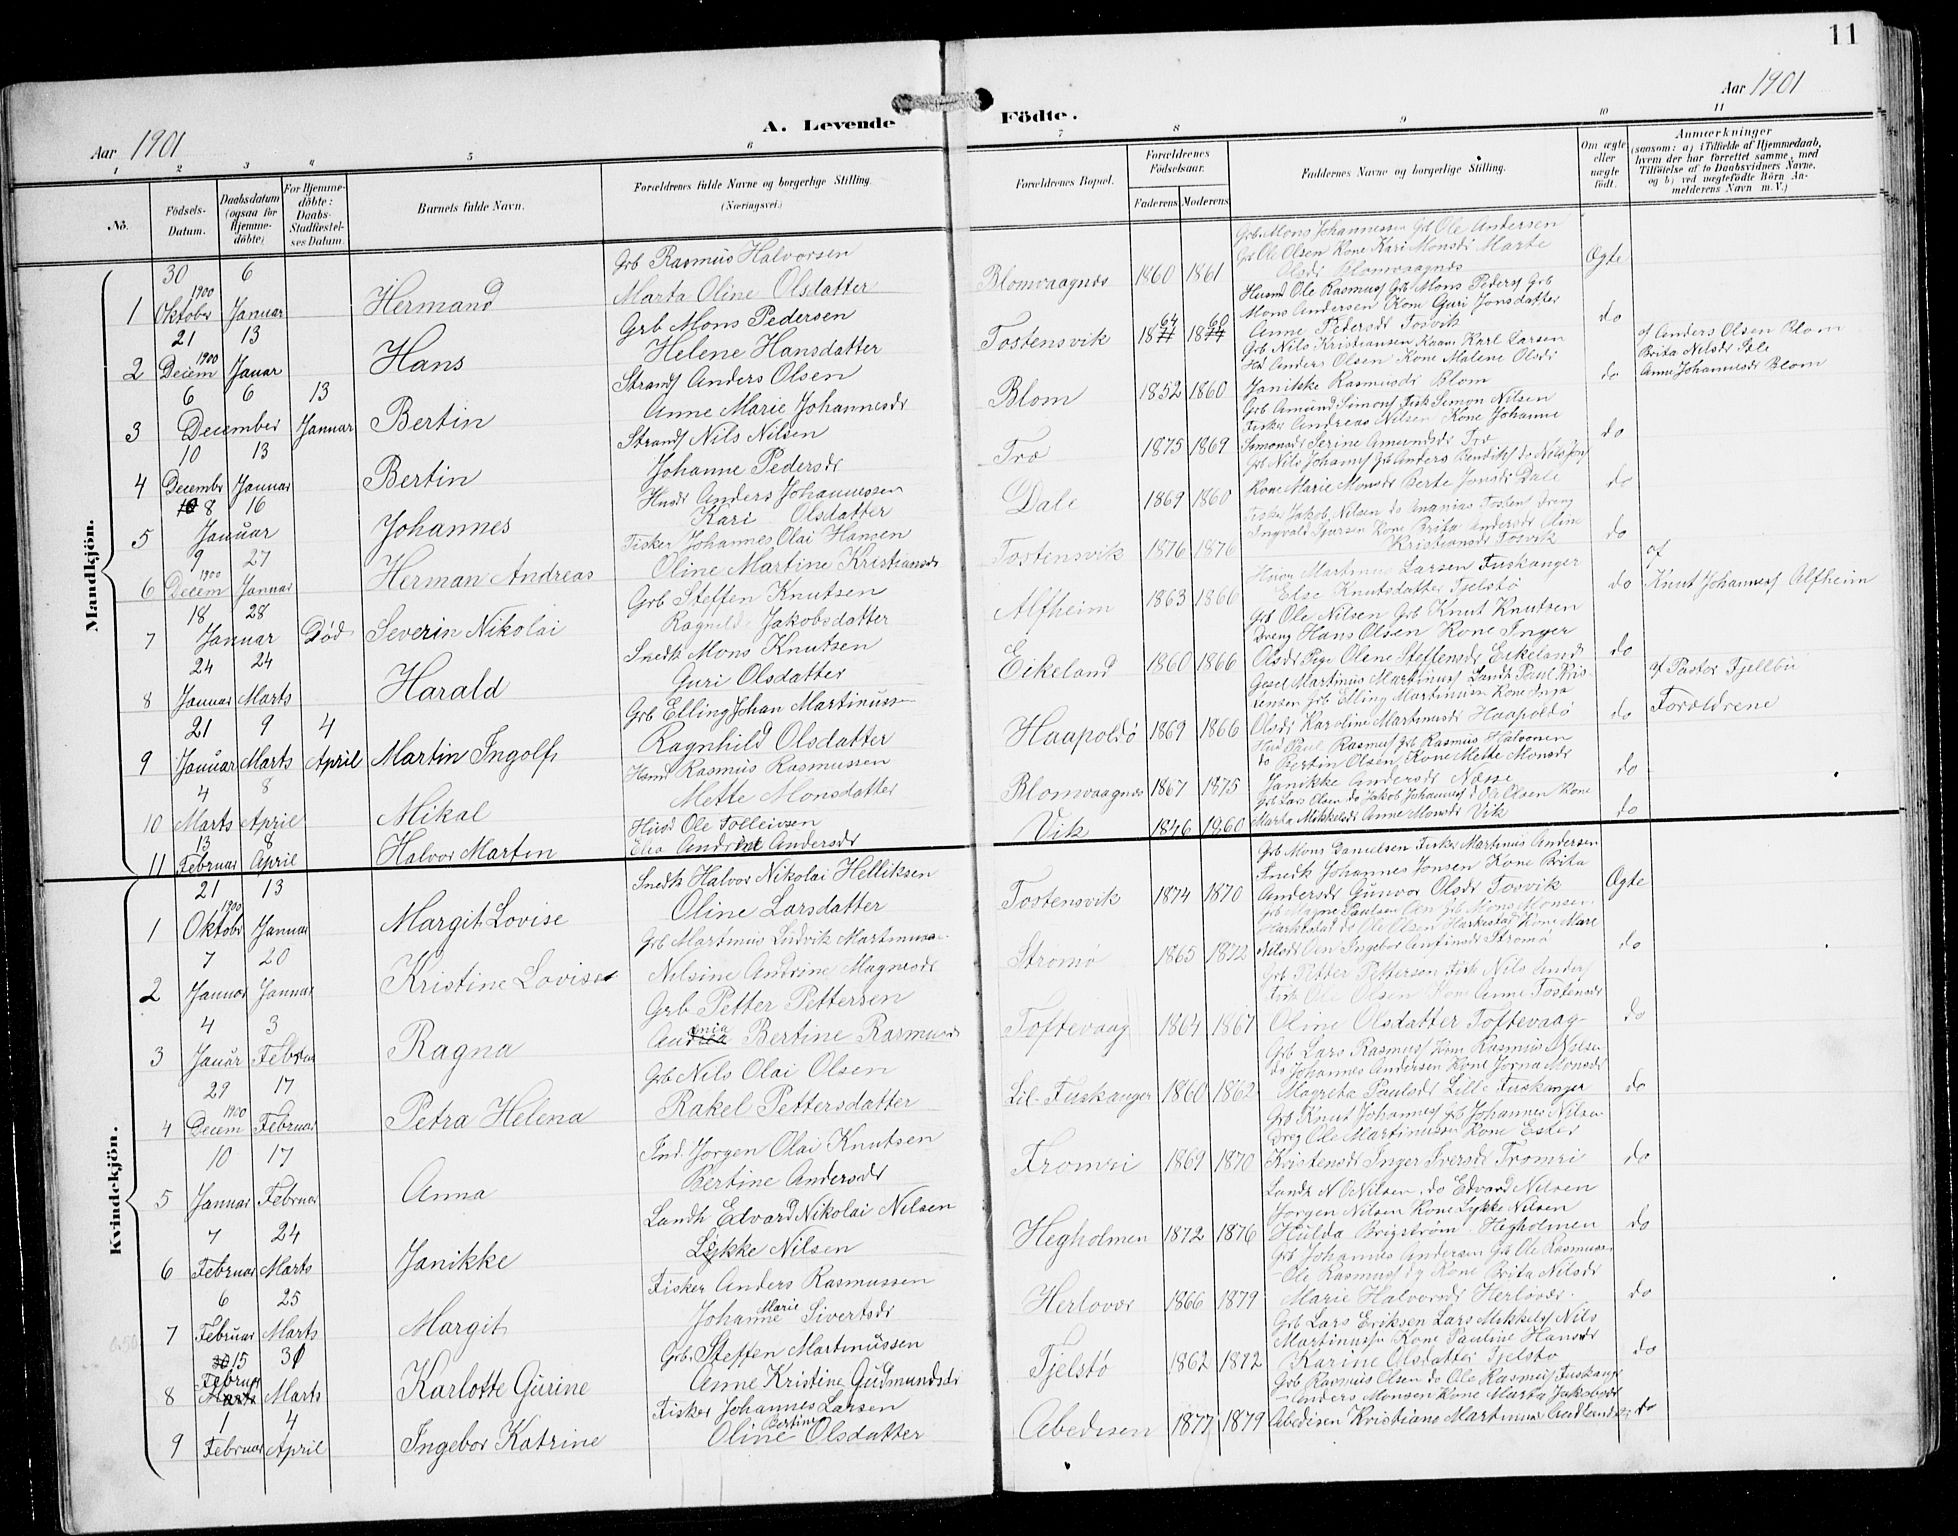 11
Aar 1901
A. Levende Födte.
Aar 1901
1 2 3 4 5 6 7 8 9 10 11
No.
Födsels-Datum.
Daabsdatum (ogsaa for Hjemme-döbte)
For Hjemme-döbte: Daabs-Stadfæstel-ses Datum.
Barnets fulde Navn.
Forældrenes fulde Navne og borgerlige Stilling.
(Næringsvei.)
Forældrenes Bopæl.
Forældrenes Födselsaar.
Faderens Moderens
Faddernes Navne og borgerlige Stilling.
Om ægte eller uægte födt.
Anmærkninger
(saasom: a) i Tilfælde af Hjemmedaab, hvem der har forrettet samme, med Tilföielse af to Daabsvidners Navne, og b) ved uægtefödte Börn An-melderens Navn m. V.)
Mandkjön.
1 30 Oktober 1900 6 Januar Hermand Grb Rasmus Halvorsen Marta Oline Olsdatter Blomvaagnes 1860 1861 Grb Mons Johannessen Gb Ole Andersen
Gb Ole Olsen Kone Kari Monsdr Marte
Olsdr Blomvaagnes Ægte
2 21 Decem 1900 13 Januar Hans Grb Mons Pedersen Helene Hansdatter Tostensvik 1864 1860 Husmd Ole Rasmusf Grb Mons Pedersf Grb
Mons Andersen Kone Guri Jonsdatter
Anne Pedersdr Tosvik do
3 6 December 6 13 Januar Bertin Strandf Anders Olsen Anne Marie Johannesdr Blom 1852 1860 Grb Nils Kristiansen Karl Larsen
Anders Olsen Kone Malene Olsdr
Janikke Rasmusdr Blom do af Anders Olsen Blom
Brita Nilsdr
Anne Johannesdr Blom
4 10 December 13 Januar Bertin Strandf Nils Nilsen Johanne Pedersdr Tro 1875 1869 Grb Amund Simonsf Fisk Simon Nilsen
Fisker Andreas Nilsen Kone Johanne
Simonsdr Serine Amundsdr Tro do
5 8 Januar 16 Johannes Husdr Anders Johannessen Kari Olsdatter Dale 1869 1860 Grb Nils Johansf Grb Anders Bendiksf do Nils
Kone Marie Monsdr Berte Jonsdr Dale do
6 9 Decem 1900 27 Januar Herman Andreas Fisker Johannes Olai Hansen Oline Martine Kristiansdr Tostensvik 1876 1876 Fisker Jakob Nilsen do Ananias Dreng
Ingvald Kone Brita Andersdr Oline
Kristiansdr Tosvik do
7 18 Januar 28 Död Severin Nikolai Grb Steffen Knutsen Ragnilde Jakobsdatter Alfheim 1863 1866 Martinus Larsen Fuskanger
Else Knutsdatter Fjelstö do af
Knut Johannesf Alfheim
8 24 Januar 24 Marts Harald Snedk Mons Knutsen Guri Olsdatter Eikeland 1860 1866 Grb Ole Nilsen Grb Knut Knutsen
Dreng Hans Olsen Kone Inger
Olsdr Pige Olene Steffensdr Eikeland do
9 21 Januar 9 Marts 4 April Martin Ingolf Grb Elling Johan Martinuss Ragnhild Olsdatter Haapoldö 1869 1866 Gesel Martinus Martinusf Landh Paul Kris-
tensen Grb Elling Martinusen Kone Inga
Olsdr Karoline Martinusdr Haapoldö do af Pastor Fjellbu
Forældrene
10 4 Marts 8 April Mikal Rasmus Rasmussen Mette Monsdatter Blomvaagnes 1867 1875 Paul Rasmusf Grb Rasmus Halvorsen
do Bertin Olsen Kone Mette Monsdr
Janikke Andersdr Næsse do
11 13 Februar 8 April Halvor Martin Husd Ole Tolleivsen Elia Andrea Andersdr Vik 1846 1860 Grb Lars Olsen do Jakob Johannesf do Ole Olsen Kone
Marta Mikkelsdr Anne Monsdr Vik do
Kvindekjön.
1 21 Oktober 1900 13 Januar Margit Lovise Snedk Halvor Nikolai Helliksen Oline Larsdatter Tostensvik 1874 1870 Grb Mons Danielsen Fisker Martinus Andersen
Snedk Johannes Jonsen Kone Brita
Andersdr Gunvor Olsdr Tosvik Ægte
2 7 Januar 20 Januar Kristine Lovise Grb Martinus Ludvik Martinuss Nilsine Andrine Magnesdr Strömö 1865 1872 Grb Magne Paulsen Grb Mons Monsen
do Ole Olsen Kone Mari
Nilsdr Ingebor Strömö do
3 4 Januar 3 Februar Ragna Grb Petter Pettersen Anania Bertine Rasmusdr Toftevaag 1864 1867 Grb Petter Pettersen Fisk Nils Andersf
Fisk Ole Olsen Kone Anne Tostensdr
Oline Olsdatter Toftevaag do
4 29 Decem 1900 17 Februar Petra Helena Grb Nils Olai Olsen Rakel Pettersdatter Lil-Fuskanger 1860 1862 Grb Lars Rasmusf Rasmus Nilsen
do Johannes Andersen Kone Jorna Monsdr
Magreta Paulsdr Lille Fuskanger do
5 10 Januar 17 Februar Anna Ind. Jorgen Olai Knutsen Bertine Andersdr Fromri 1869 1870 Grb Knut Johannesf Grb Johannes Nilsen
Dreg Ole Martinussen Kone Ester
Kristensdr Inger Iversdr Fromri do
6 7 Februar 24 Marts Janikke Landh Edvard Nikolai Nilsen Lykke Nilsen Hegholmen 1872 1876 Landh N O Nilsen, do Edvard Nilsen
Jorgen Nilsen Kone Lykke Nilsen
Hulda Brigström Hegholmen do
7 6 Februar 25 Marts Margit Fisker Anders Rasmussen Johanne Marie Sivertsdr Herlövær 1866 1879 Grb Johannes Andersen Grb Ole Rasmussen
Ole Rasmusf Kone Brita Nilsdr
Marie Halvorsdr Herlövær do
8 15 Februar 31 Marts Karlotte Gurine Grb. Steffen Martinussen Anne Kristine Gudmundsdr Fjelstö 1862 1872 Grb Lars Eriksen Lars Mikkelsf Nils
Martinussen Kone Pauline Hansdr
Karine Olsdatter Fjelstö do
9 1 Februar 4 April Ingebor Katrine Fisker Johannes Larsen Oline Bertine Olsdatter Aebedisen 1877 1879 Grb Rasmus Olsen do Ole Rasmusf Fuskanger
Anders Monsen Kone Marta Jakobsdr
Aebedisen Kristiane Martinus do